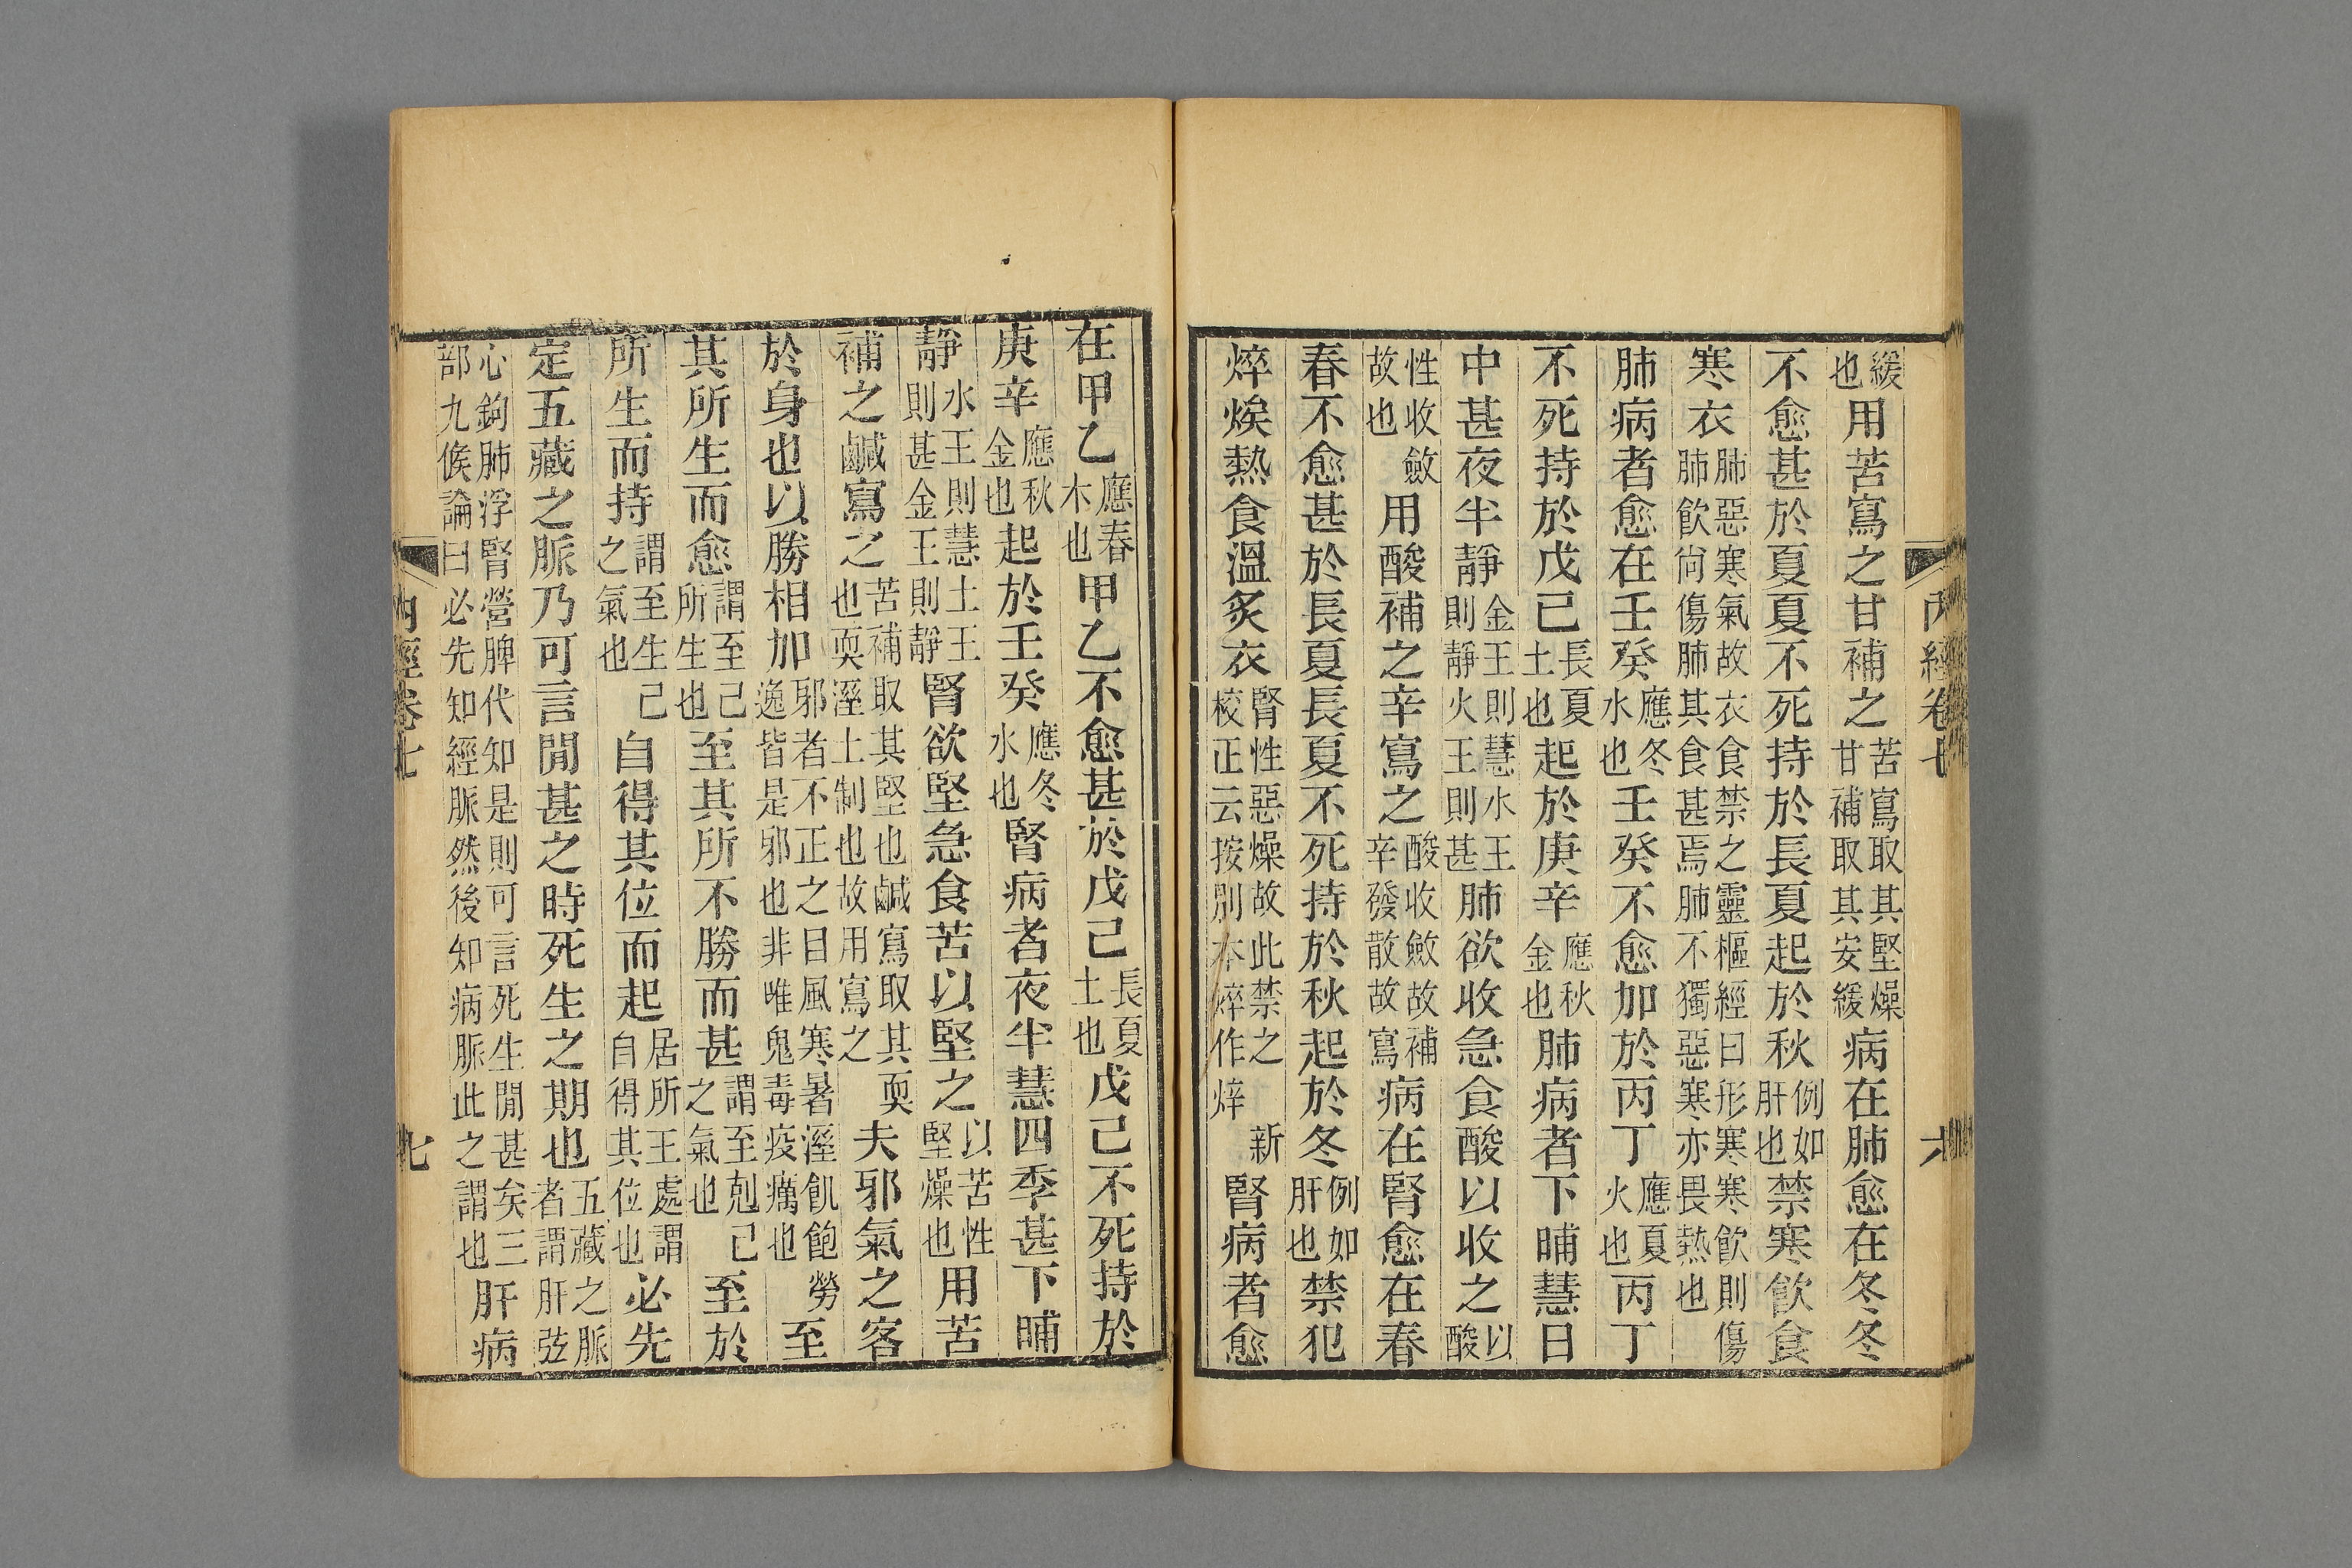 緩也用苦寫之甘補之苦寫取其堅燥甘補取其安緩病在肺愈在冬冬
不愈甚於夏夏不死持於長夏起於秋例如肝也禁寒飲食
寒衣肺惡寒氣故衣食禁之靈樞經曰形寒寒飲則傷肺飲尙傷肺其食甚焉肺不獨惡寒亦畏熱也
肺病者愈在壬癸應冬水也壬癸不愈加於丙丁應夏火也丙丁
不死持於戊己長夏土也起於庚辛應秋金也肺病者下晡慧日
中甚夜半靜金王則慧水王則靜火王則甚肺欲收急食酸以收之以酸
性收斂故也用酸補之辛寫之酸收斂故補辛發散故寫病在腎愈在春
春不愈甚於長夏長夏不死持於秋起於冬例如肝也禁犯
焠㶼熱食溫炙衣腎性惡燥故此禁之新校正云按別本焠作焠腎病者愈
內經卷七 六
在甲乙應春木也甲乙不愈甚於戊己長夏土也戊己不死持於
庚辛應秋金也起於壬癸應冬水也腎病者夜半慧四季甚下晡
靜水王則慧土王則甚金王則靜腎欲堅急食苦以堅之以苦性堅燥也用苦
補之鹹寫之苦補取其堅也鹹寫取其耎也耎溼土制也故用寫之夫邪氣之客
於身也以勝相加邪者不正之目風寒暑溼飢飽勞逸皆是邪也非唯鬼毒疫癘也至
其所生而愈謂至己所生也至其所不勝而甚謂至剋己之氣也至於
所生而持謂至生己之氣也自得其位而起居所王處謂自得其位也必先
定五藏之脈乃可言閒甚之時死生之期也五藏之脈者謂肝弦
心鉤肺浮腎營脾代知是則可言死生閒甚矣三部九候論曰必先知經脈然後知病脈此之謂也肝病
內經卷七 七